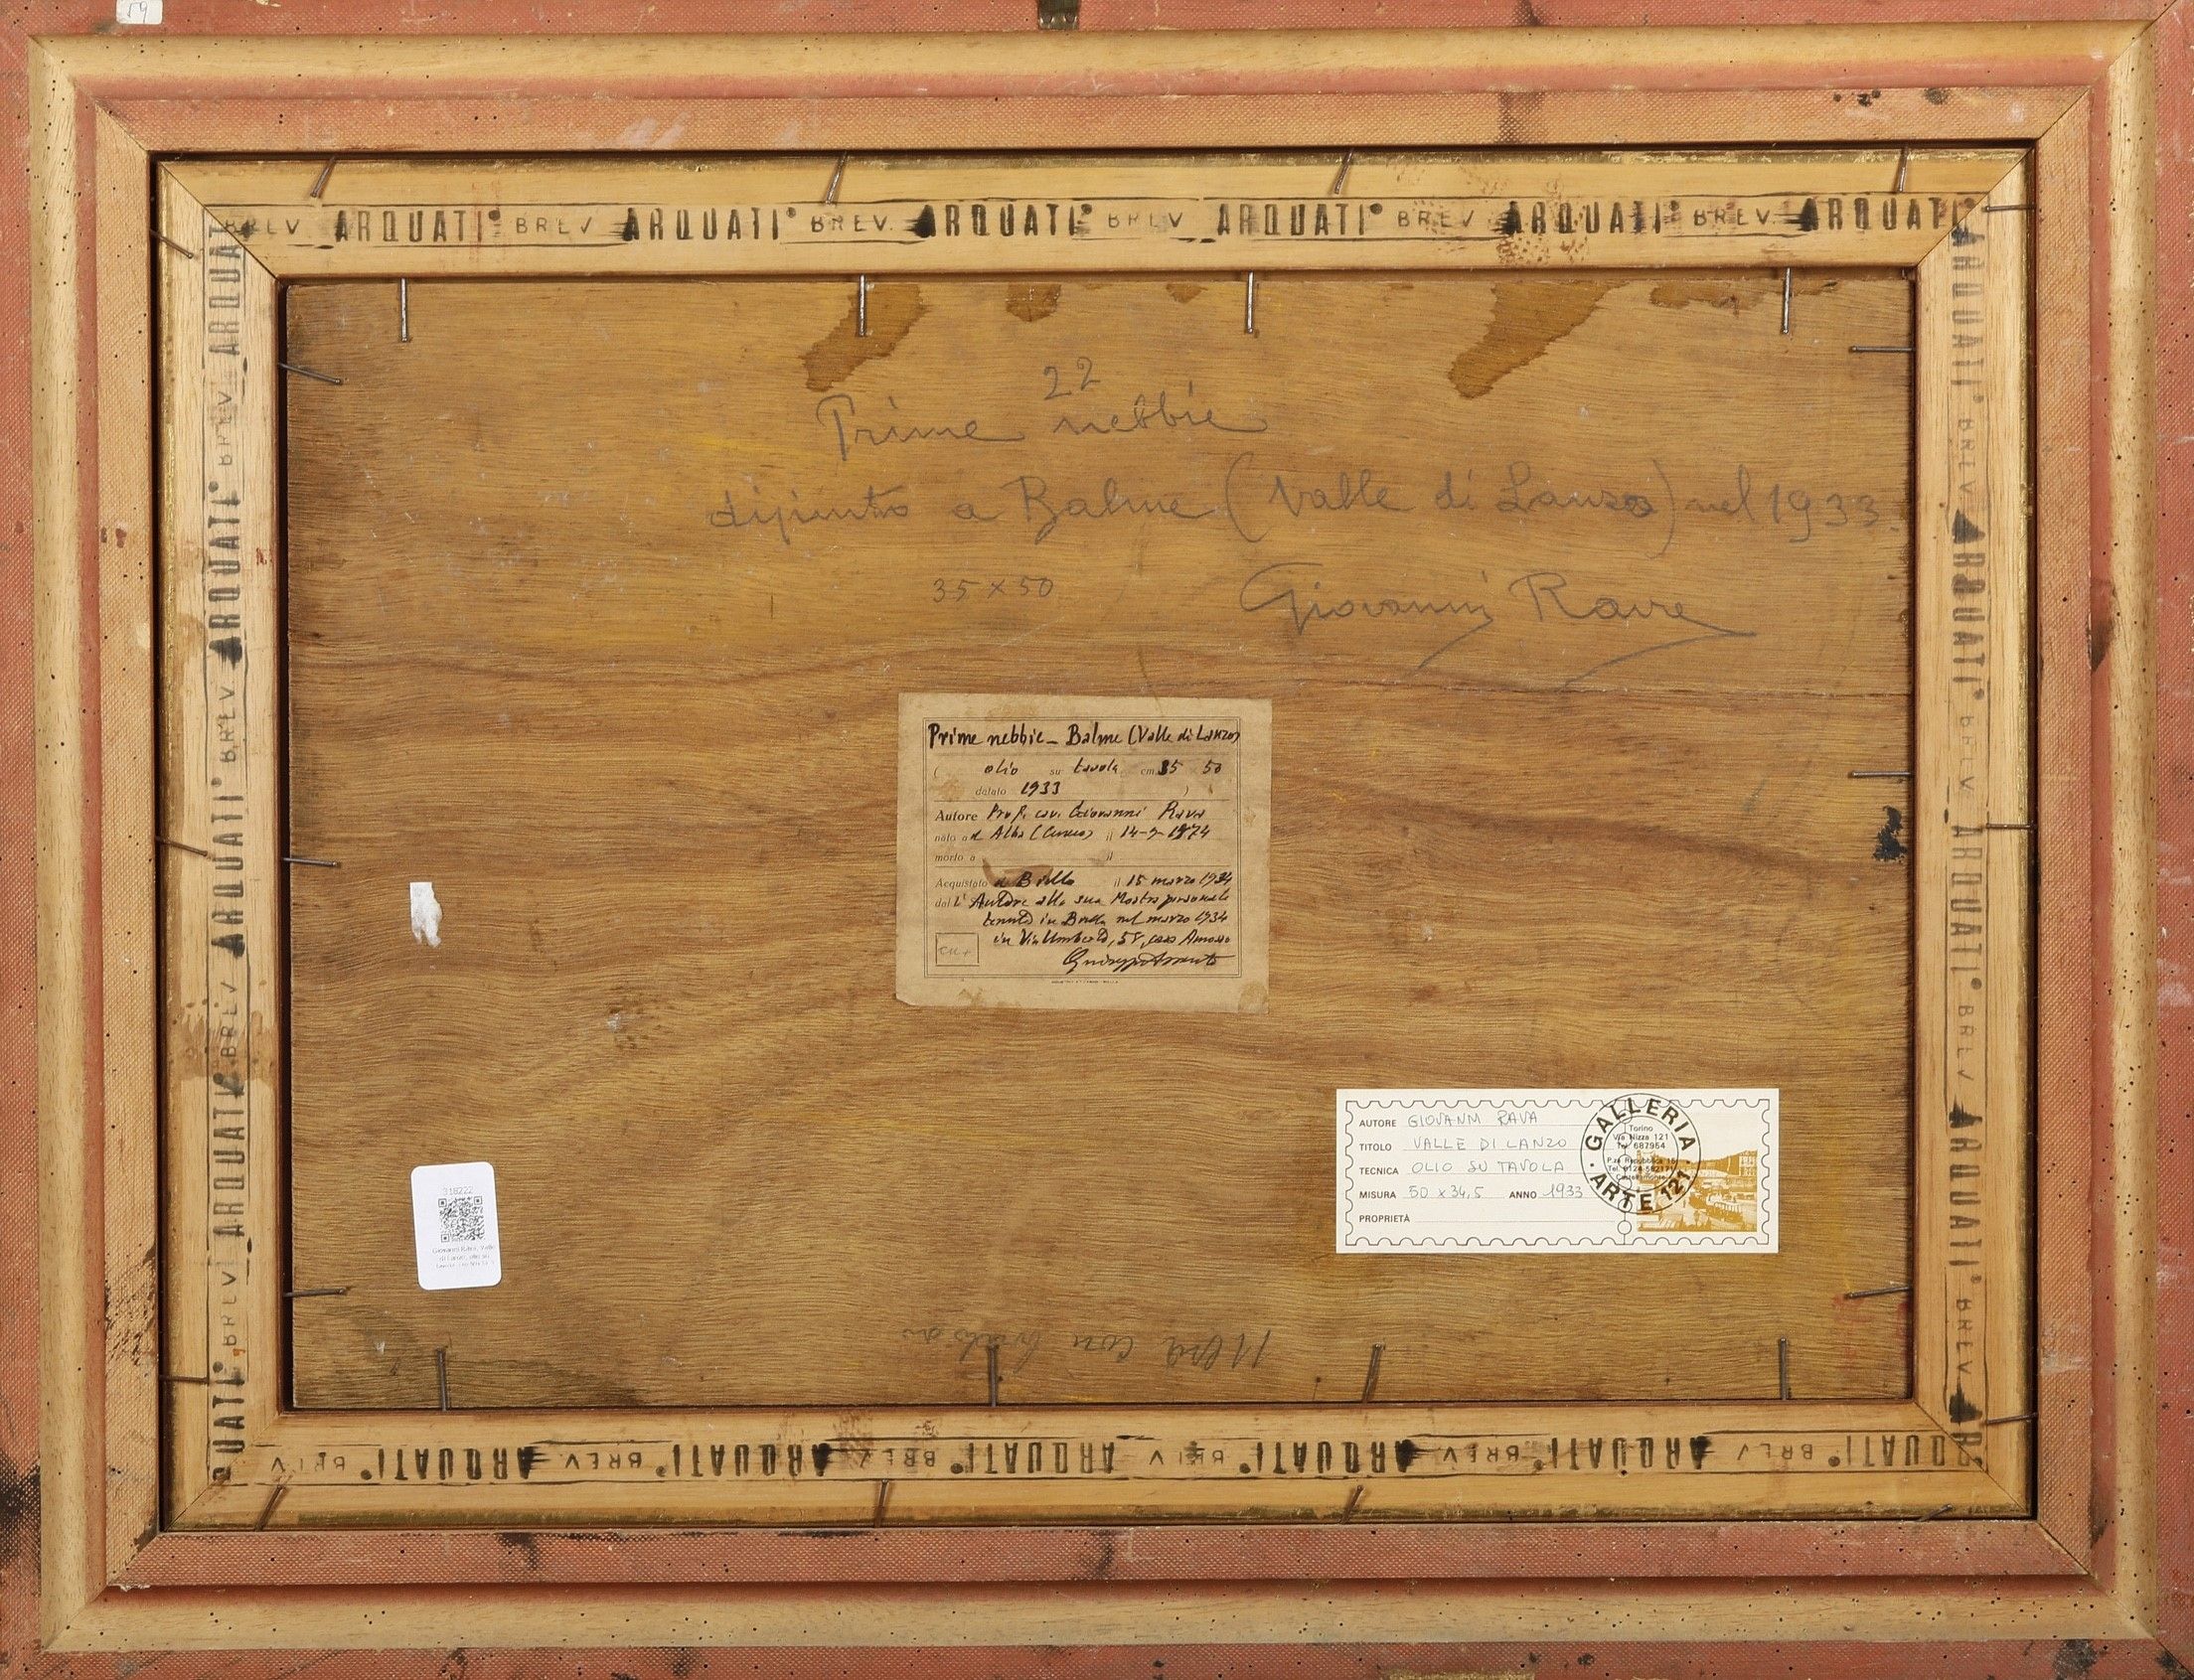 59
BREV ARQUATI BREV ARQUATI BREV. ARQUATI BREV ARQUATI BREV ARQUATI BREV. ARQUATI
22
Prime nebbie
dipinto a Balme (Valle di Lanzo) nel 1933.
35 x 50
Giovanni Rava
Prime nebbie - Balme (Valle di Lanzo)
( olio su tavola, cm 35 50
datato 1933 )
Autore Prof. cav. Giovanni Rava
nato ad Alba (Cuneo) il 14-9-1874
morto a il
Acquistato a Biella il 15 marzo 1934
dal l'Autore alla sua Mostra personale
tenuta in Biella nel marzo 1934
in Via Umberto, 58, casa Amosso
AUTORE GIOVANNI RAVA
TITOLO VALLE DI LANZO
TECNICA OLIO SU TAVOLA
MISURA 50 x 34,5 ANNO 1933
PROPRIETÀ
GALLERIA ARTE 121
Torino
Via Nizza 121
Tel. 687954
318222
Giovanni Rava, Valle
di Lanzo, olio su
ARQUATI BREV ARQUATI BREV ARQUATI BREV ARQUATI BREV ARQUATI BREV
ARQUATI BREV ARQUATI BREV ARQUATI BREV ARQUATI BREV
ARQUATI BREV ARQUATI BREV ARQUATI BREV ARQUATI BREV ARQUATI BREV ARQUATI BREV